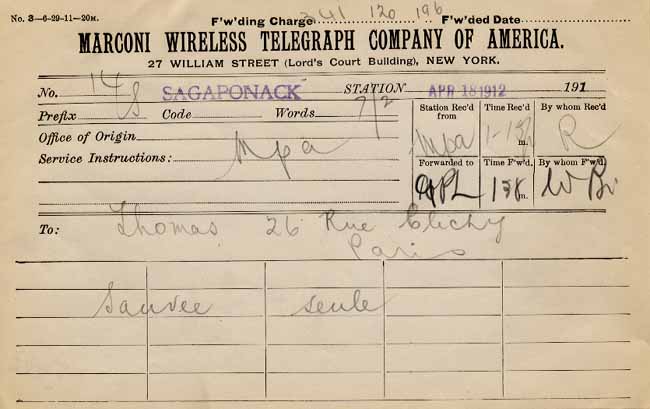 No. 3—6-29-11—20M. F'w'ding Charge 341 120 196 F'w'ded Date
MARCONI WIRELESS TELEGRAPH COMPANY OF AMERICA.
27 WILLIAM STREET (Lord's Court Building), NEW YORK.
No. 14 SAGAPONACK STATION APR 18 1912 191
Prefix S Code Words 7/2
Station Rec'd from Time Rec'd By whom Rec'd
Office of Origin Mpa
Mpa m. R
Service Instructions:
Forwarded to Time F'w'd. By whom F'w'd.
138 m.
To: Thomas 26 Rue Clichy
Paris
Sauvee seule